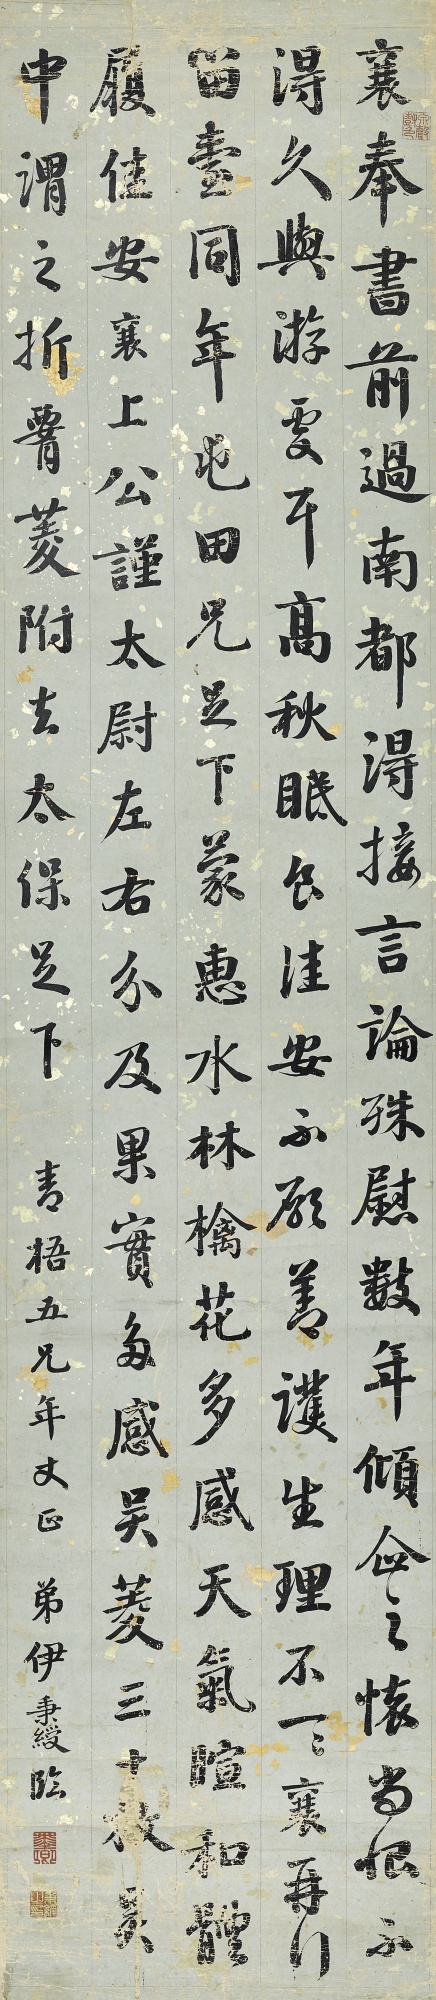 襄奉書前過南都得接言論殊慰數年傾企之懷尚恨不
得久與游處耳高秋眠食佳安不願善護生理不一一襄再行
留臺同年屯田兄足下蒙惠水林檎花多感天氣暄和體
履佳安襄上公謹太尉左右分及果實多感吴菱三十枚吴
中謂之折腰菱附去太保足下 青梧五兄年丈正 弟伊秉綬臨